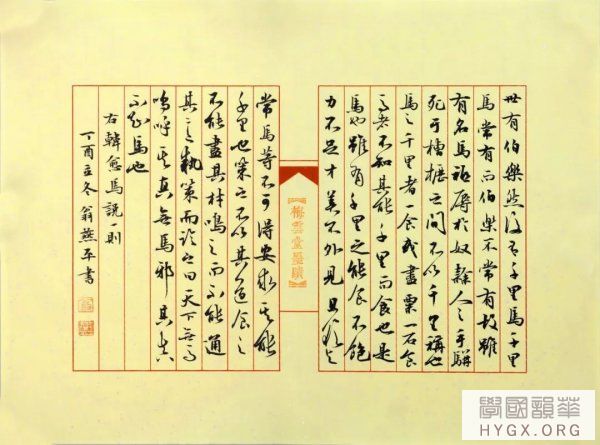 世有伯樂然後有千里馬千里
馬常有而伯樂不常有故雖
有名馬祗辱於奴隸人之手駢
死于槽櫪之間不以千里稱也
馬之千里者一食或盡粟一石食
馬者不知其能千里而食也是
馬也雖有千里之能食不飽
力不足才美不外見且欲與
【梅雲堂墨】
常馬等不可得安求其能
千里也策之不以其道食之
不能盡其材鳴之而不能通
其意執策而臨之曰天下無馬
嗚呼其真無馬邪其真
不知馬也
右韓愈馬說一則
丁酉立冬翁燕平書
學國韻華
HYGX.ORG